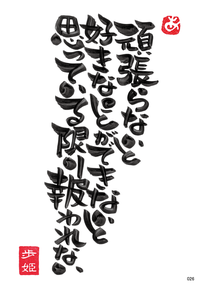 あ
頑張らないと
好きなことができないと
思っている限り報われない
歩
姫
029